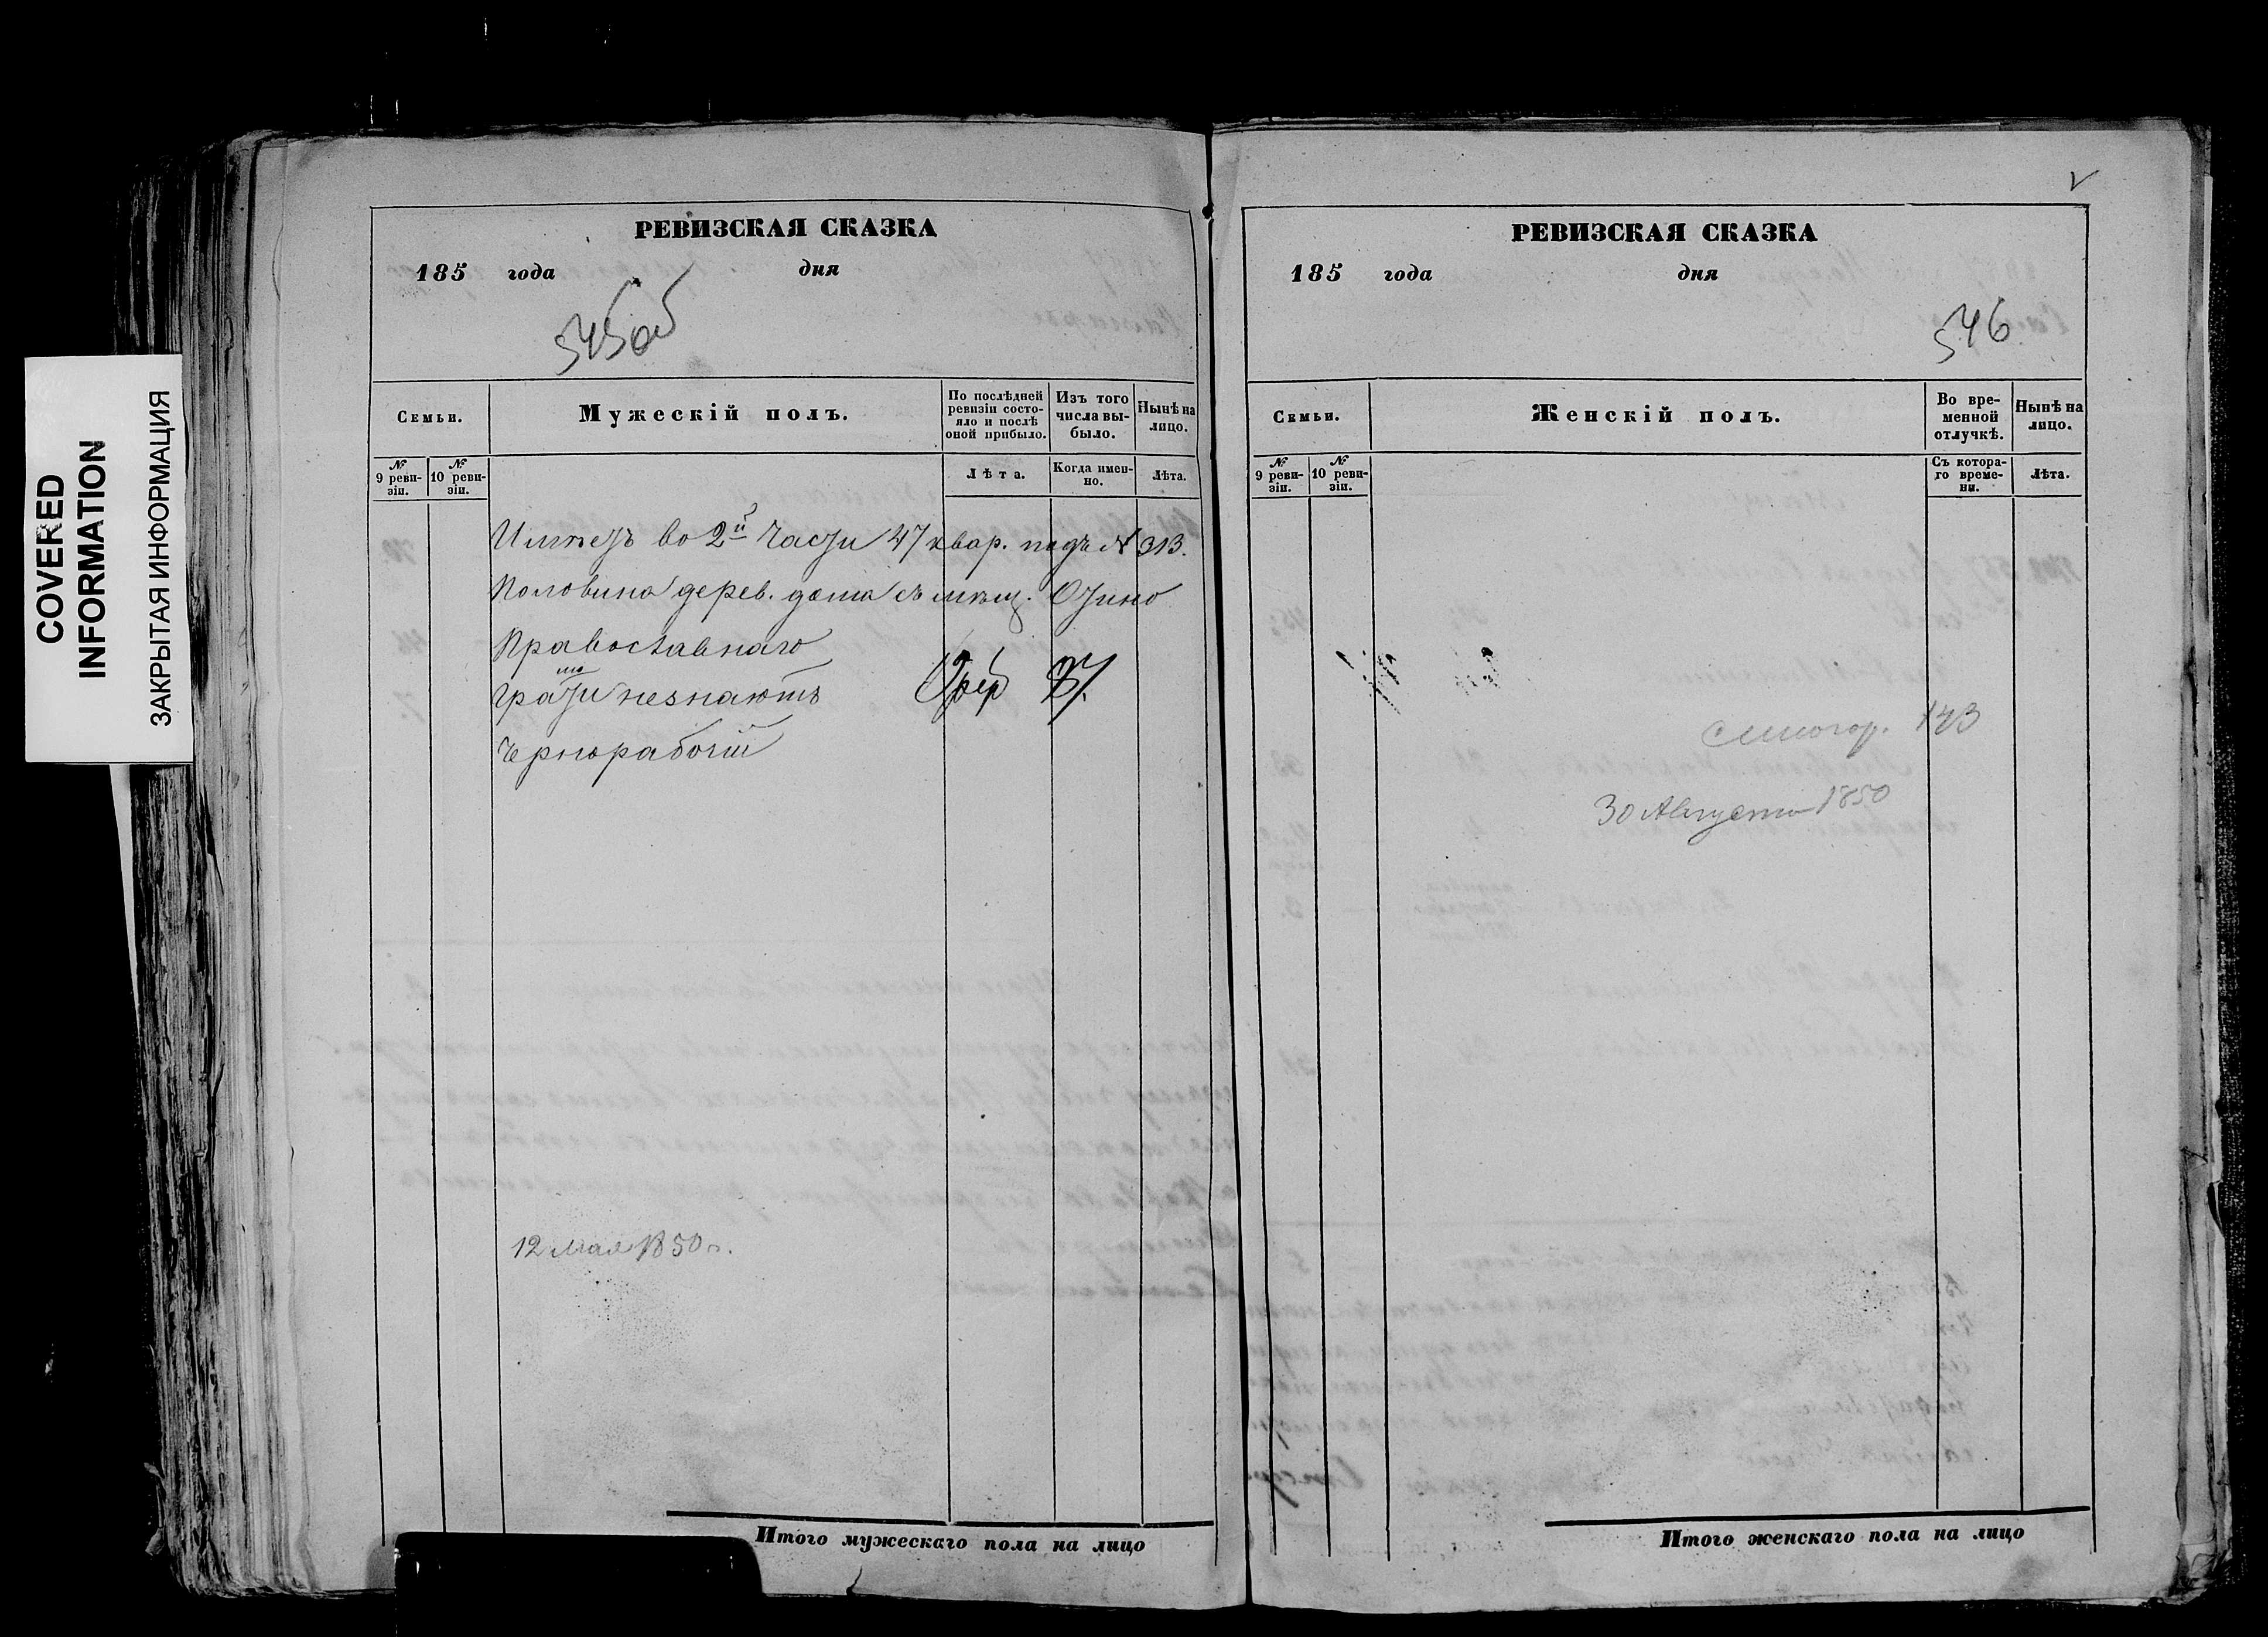 COVERED
INFORMATION
ЗАКРЫТАЯ ИНФОРМАЦИЯ
РЕВИЗСКАЯ СКАЗКА
185 года дня
545об
Семьи.
Мужескій полъ.
По послѣдней ревизіи состояло и послѣ оной прибыло.
Изъ того числа выбыло.
Нынѣ на лицо.
№ 9 ревизіи.
№ 10 ревизіи.
Лѣта.
Когда именно.
Лѣта.
Имѣетъ во 2й части 47 квар. подъ № 313.
Половина дерев. дома съ мѣщ.
Православнаго
Грамоти незнаютъ
Чернорабочій
12 Мая 1850 г.
Итого мужескаго пола на лицо
РЕВИЗСКАЯ СКАЗКА
185 года дня
546
Семьи.
Женскій полъ.
Во временной отлучкѣ.
Нынѣ на лицо.
№ 9 ревизіи.
№ 10 ревизіи.
Съ котораго времени.
Лѣта.
143
30 Августа 1850
Итого женскаго пола на лицо